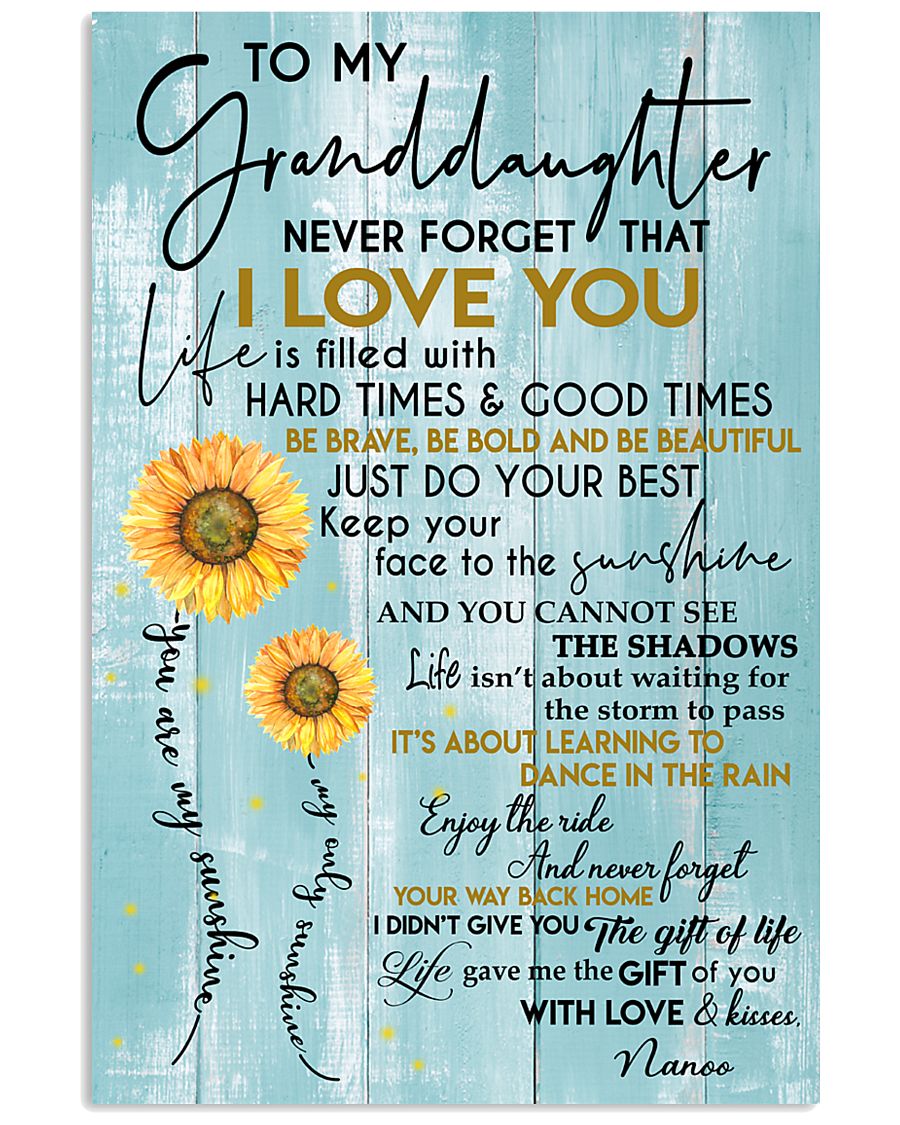 TO MY
Granddaughter
NEVER FORGET THAT
I LOVE YOU
Life is filled with
HARD TIMES & GOOD TIMES
BE BRAVE, BE BOLD AND BE BEAUTIFUL
JUST DO YOUR BEST
Keep your
face to the sunshine
AND YOU CANNOT SEE
THE SHADOWS
Life isn't about waiting for
the storm to pass
IT'S ABOUT LEARNING TO
DANCE IN THE RAIN
Enjoy the ride
And never forget
YOUR WAY BACK HOME
I DIDN'T GIVE YOU The gift of life
Life gave me the GIFT of you
WITH LOVE & kisses,
Nanoo
you are my sunshine
my only sunshine